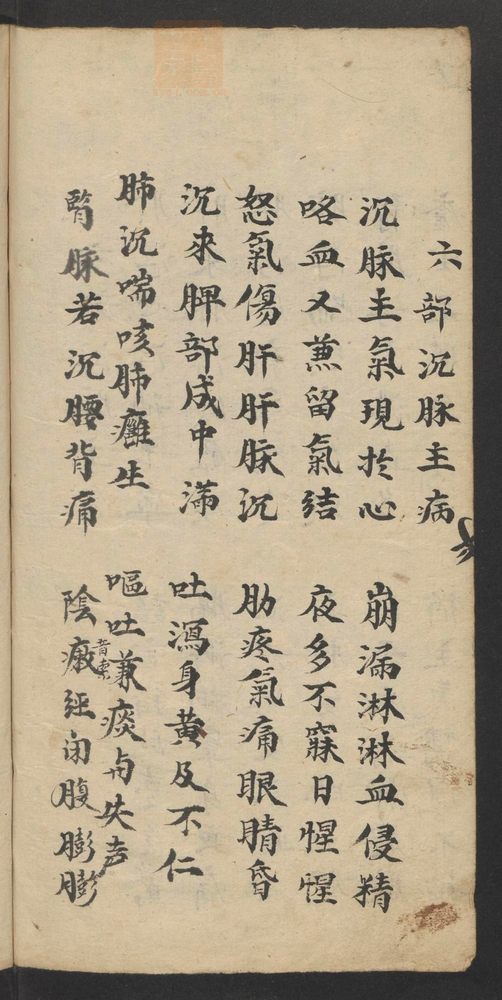 六部沉脉主病
沉脉主氣現於心 崩漏淋淋血侵精
咯血又蒹留氣結 夜多不寐日惺惺
怒氣傷肝肝脉沉 肋疼氣痛眼睛昏
沉來脾部成中满 吐瀉身黄及不仁
肺沉喘咳肺癰生 嘔吐兼痰与失声
腎脉若沉腰背痛 陰瘷經闭腹膨膨
音東